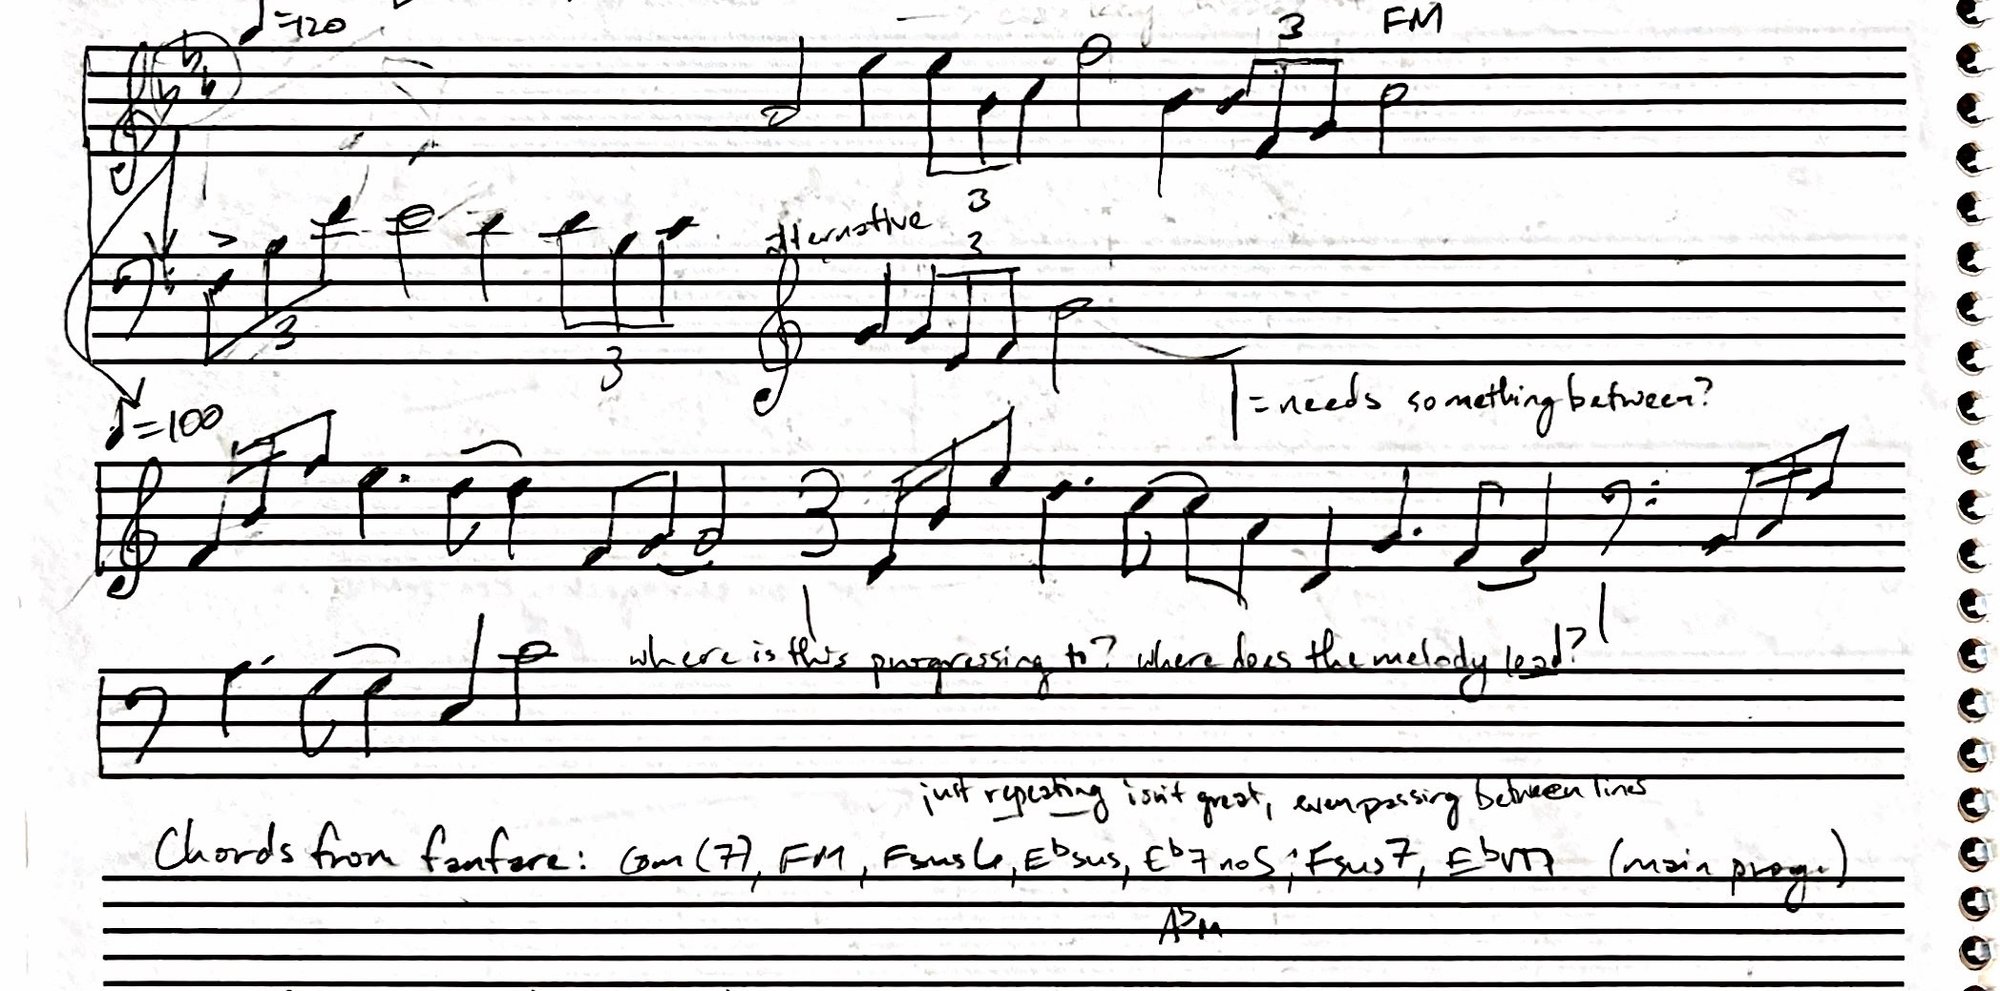 =120
3 FM
3
alternative
3
3
3
=100
|= needs something between?
where is this progressing to? where does the melody lead?
just repeating isn't great, even passing between lines
Chords from fanfare: Gm(7), FM, Fsus6, E♭sus, E♭7no5, Fsus7, E♭M7 (main prog.)
A♭M